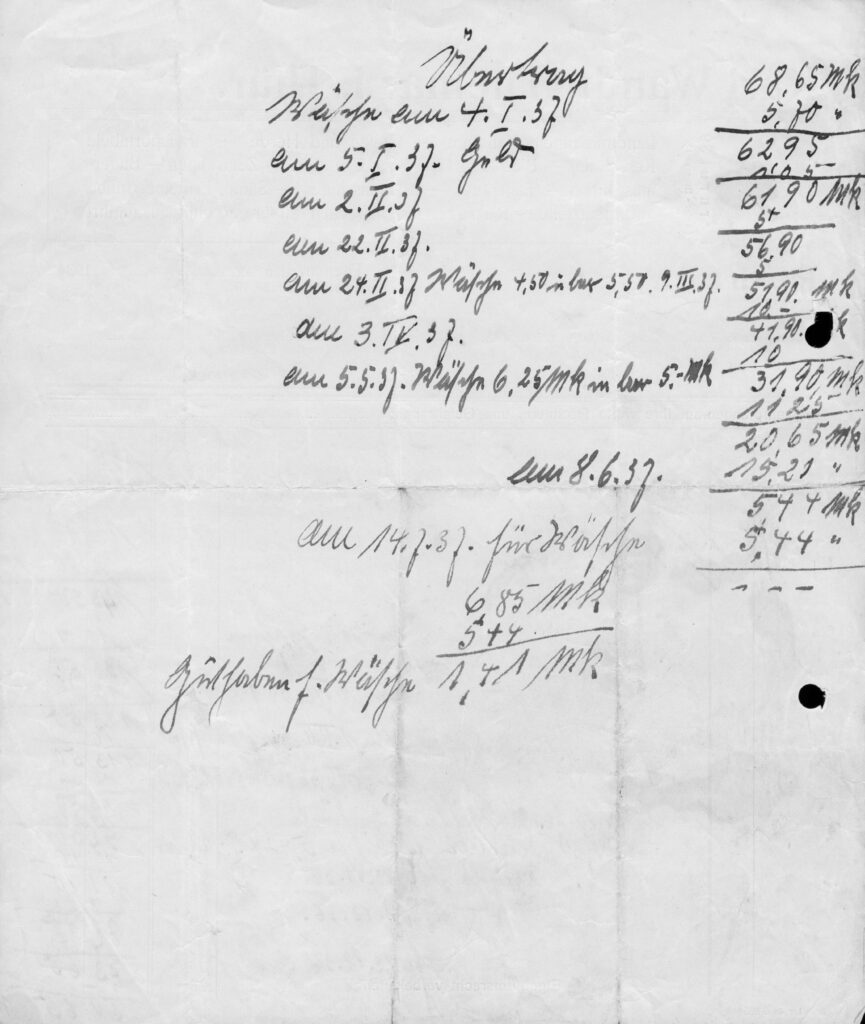 Übertrag 68,65 Mk
Wäsche am 4.I.37 5,70 "
6295
am 5.I.37. Geld 1 0 5
6190 Mk
am 2.II.37 5
56,90
am 22.II.37. 5
51,90. Mk
am 24.II.37 Wäsche 4,50 in bar 5,50. 9.III.37. 10 -
41,90. k
am 3.IV.37. 10
31,90, Mk
am 5.5.37. Wäsche 6,25 Mk in bar 5,- Mk 1125
20,65 Mk
am 8.6.37. 15,21 "
5,44 Mk
am 14.7.37. für Wäsche 5,44 "
- - -
6,85 Mk
544
Guthaben f. Wäsche 1,41 Mk